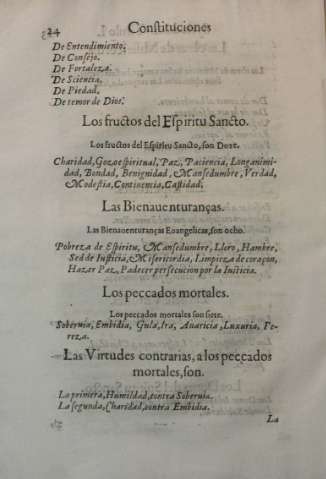 24 Constituciones
De Entendimiento.
De Consejo.
De Fortaleza.
De Sciencia.
De Piedad.
De temor de Dios.
Los fructos del Espiritu Sancto.
Los fructos del Espiritu Sancto, son Doze.
Charidad, Gozo espiritual, Paz, Paciencia, Longanimi-
dad, Bondad, Benignidad, Mansedumbre, Verdad,
Modestia, Continencia, Castidad.
Las Bienauenturanças.
Las Bienauenturanças Euangelicas, son ocho.
Pobreza de Espiritu, Mansedumbre, Lloro, Hambre,
Sed de Iusticia, Misericordia, Limpieza de coraçon,
Hazer Paz, Padecer persecucion por la Iusticia.
Los peccados mortales.
Los peccados mortales son siete.
Soberuia, Embidia, Gula, Ira, Auaricia, Luxuria, Pe-
reza.
Las Virtudes contrarias, a los peccados
mortales, son.
La primera, Humildad, contra Soberuia.
La segunda, Charidad, contra Embidia.
La